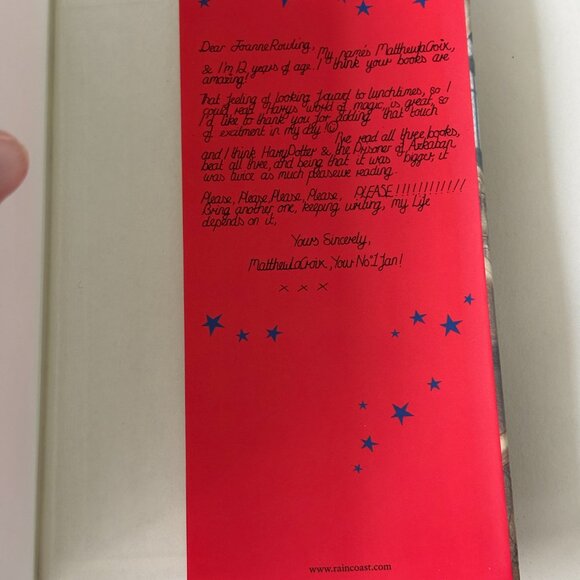 Dear Joanne Rowling, My name's Matthew LaCroix,
& I'm 12 years of age. I think your books are
amazing!
That feeling of looking foward to lunchtimes, so I
could read Harry's world of magic, is great, so
I'd like to thank you for adding that touch
of excitment in my day! ☺
I've read all three books,
and I think Harry Potter & the Prisoner of Azkaban
beat all three, and being that it was bigger, it
was twice as much pleasure reading.
Please, Please, Please, Please, PLEASE!!!!!!!!!!!!!
Bring another one, keeping writing, my Life
depends on it,
Yours Sincerely,
Matthew LaCroix, Your No.1 fan!
x x x
www.raincoast.com